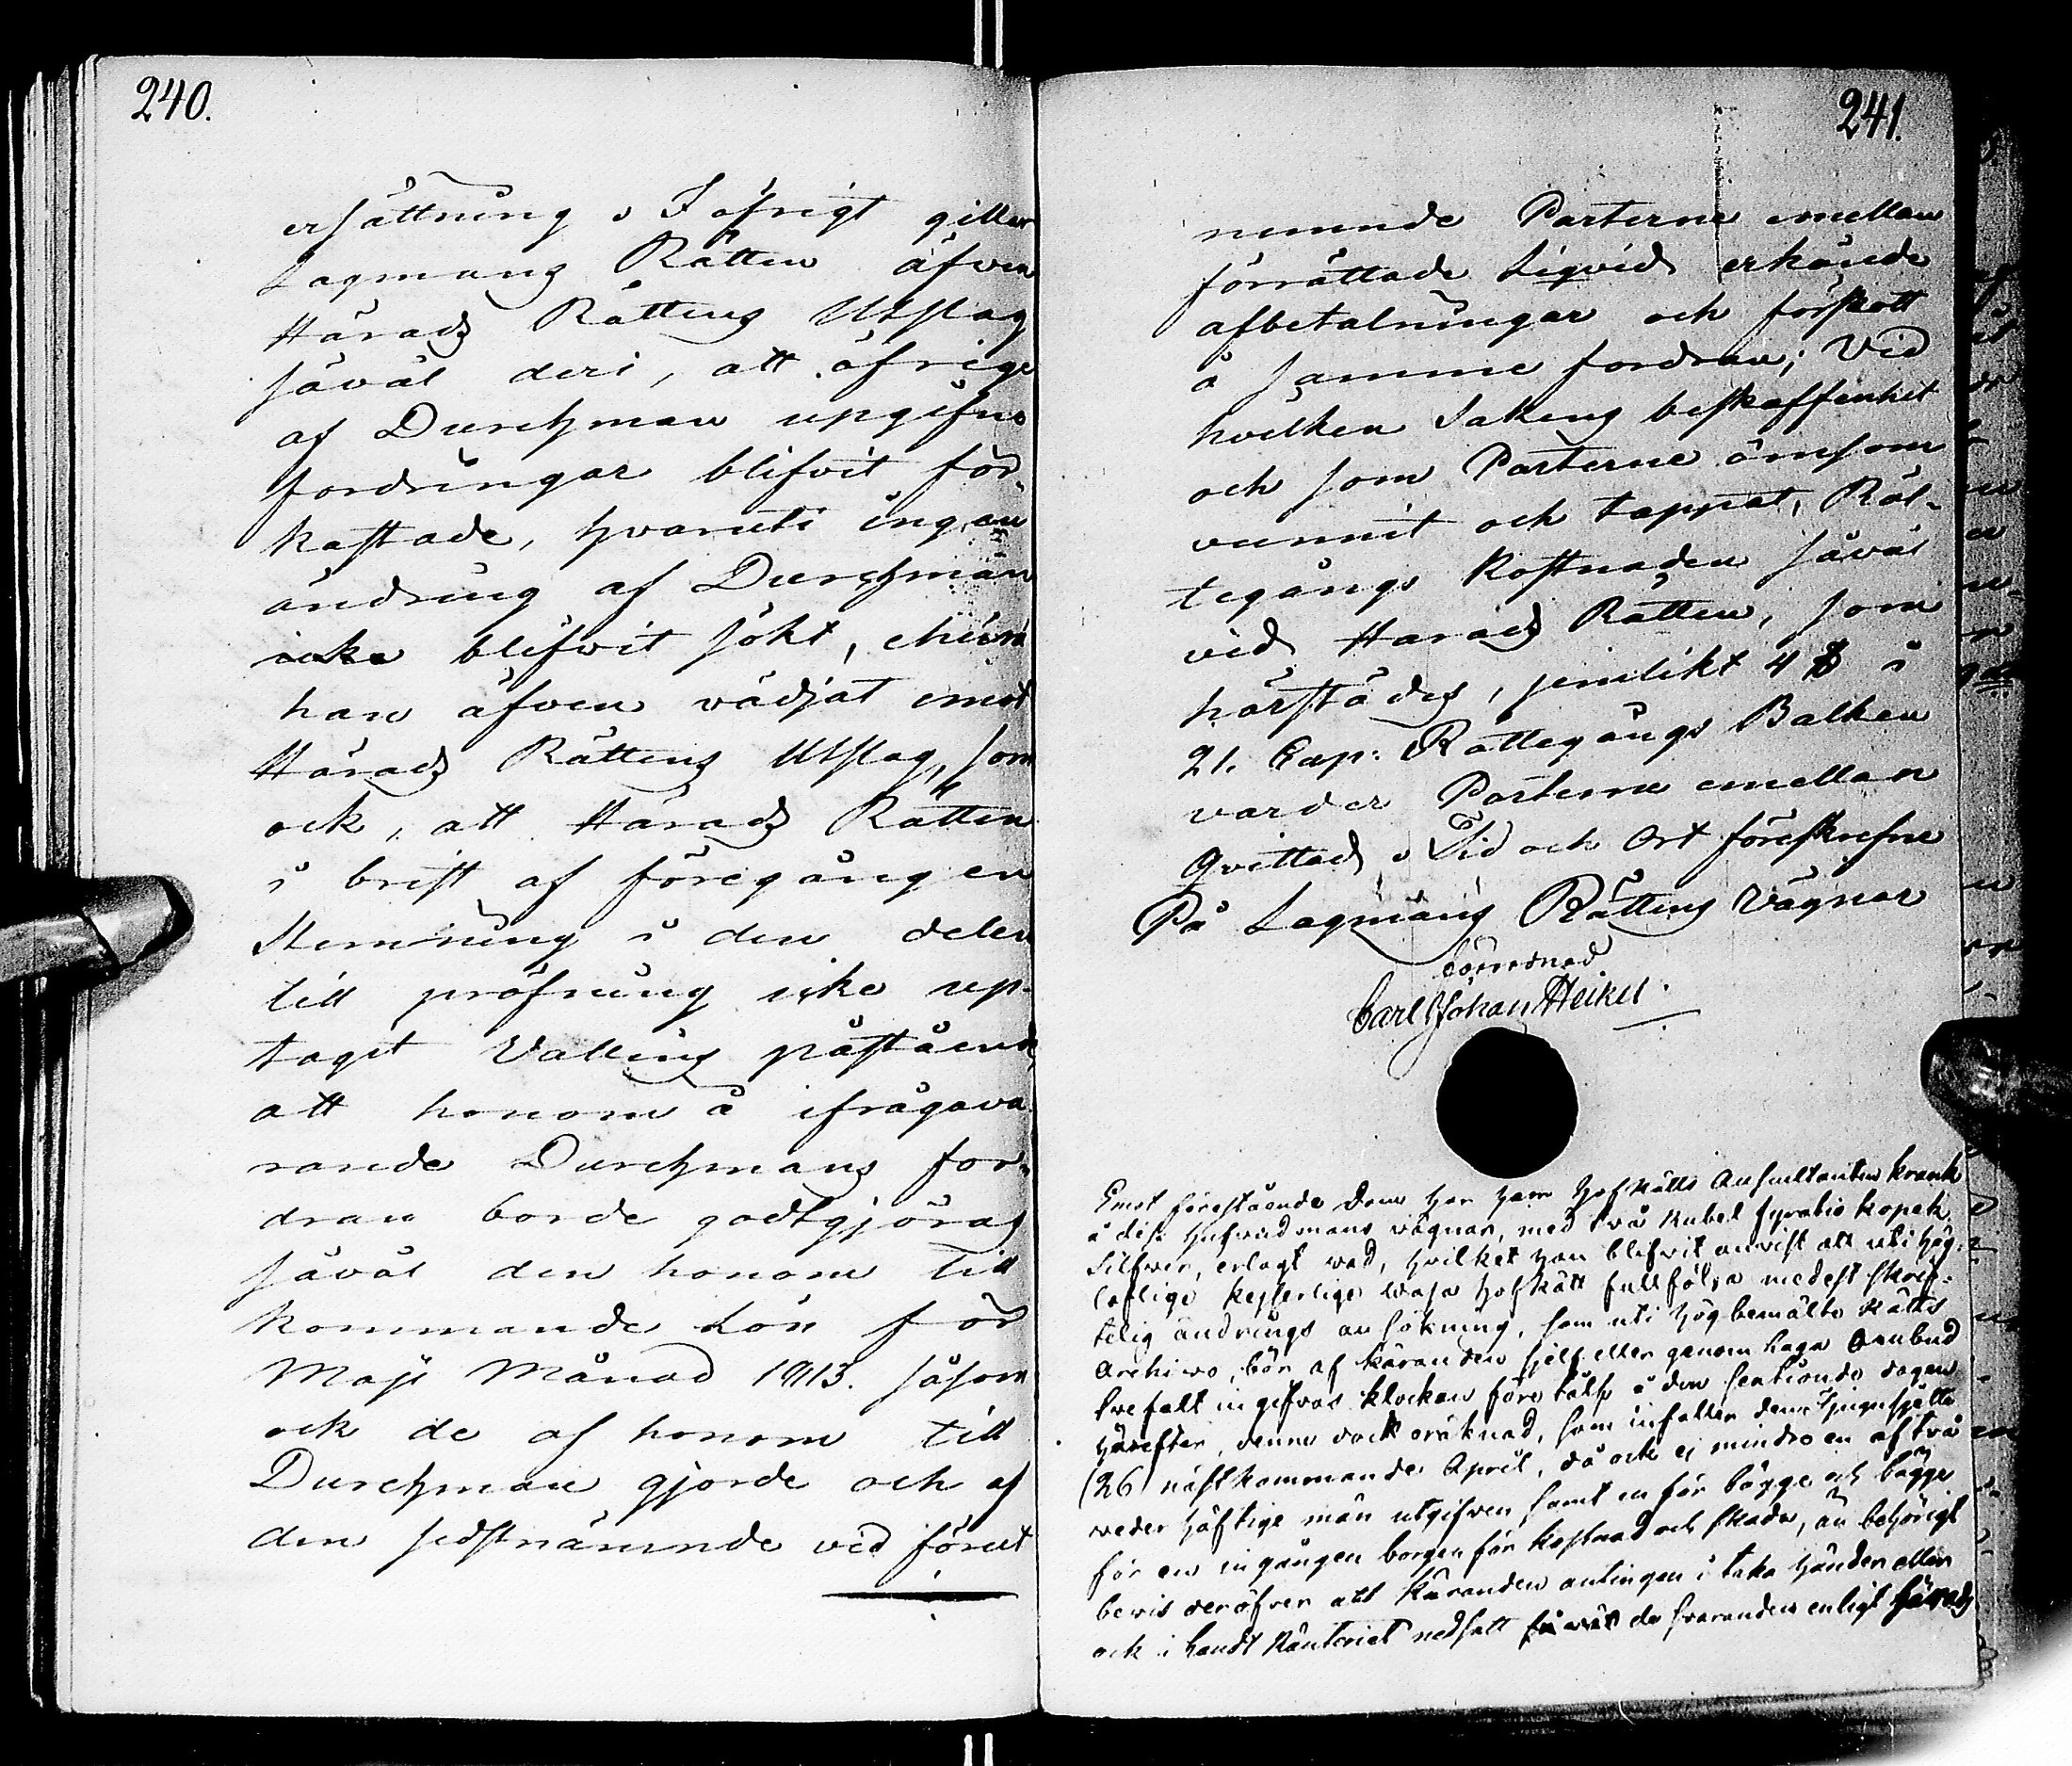 240.
ersättning. I öfrigt giller
Lagmans Rätten äfven
Härads Rättens Utslag
såväl deri, att öfrige
af Durchman upgifne
fordringar blifvit för-
kastade, hvaruti ingen
ändring af Durchman
icke blifvit sökt, ehuru
han äfven vädjat emot
Härads Rättens Utslag, som
ock, att Härads Rätten
i brist af föregången
Stemning i den delen
till pröfning icke up-
tagit Vallins påstående
att honom å ifrågava-
rande Durchmans for-
dran borde godtgjöras
såväl den honom till
kommande lön för
Maji Månad 1813. såsom
ock de af honom till
Durchman gjorde och af
den sidstnämnde vid förut
241.
nemnde Parterne emellan
förrättade Liqvid erkände
afbetalningar och förskott
å samme fordran; Vid
hvilken Sakens beskaffenhet
och som Parterne ömsom
vunnit och tappat, Rät-
tegångs Kostnaden såväl
vid Härads Rätten, som
härstädes, jemlikt 4 § i
21. Cap: Rättegångs Balken
varder Parterne emellan
qvittad. Tid och Ort föreskrefne
På Lagmans Rättens Vägnar
Carl Johan Heikel.
Emot förestående Dom har herr Hofrätts Auscultanten Krank
å dess hufvudmans vägnar, med två Rubel fyratio kopek
Silfver, erlagt vad, hvilket han blifvit anvist att uti Hög-
loflige Kejserlige Wasa Hofrätt fullfölja medelst skrif-
telig ändrings ansökning, som uti högbemälte Rätts
Archivo, bör af käranden sjelf eller genom laga Ombud
sve falt ingifvas klockan före tolf å den sextionde dagen
härefter, denne dock oräknad, som infaller den tjugusjette
(26) nästkommande April, då ock ej mindre en af två
veder häftige män utgifven, samt en för bägge och bägge
för en ingången borgen för kostnad och skada, än behörigt
bevis deröfver att Käranden antingen i taka händer eller
ock i Landt Ränteriet nedsatt det svaranden enligt Härads